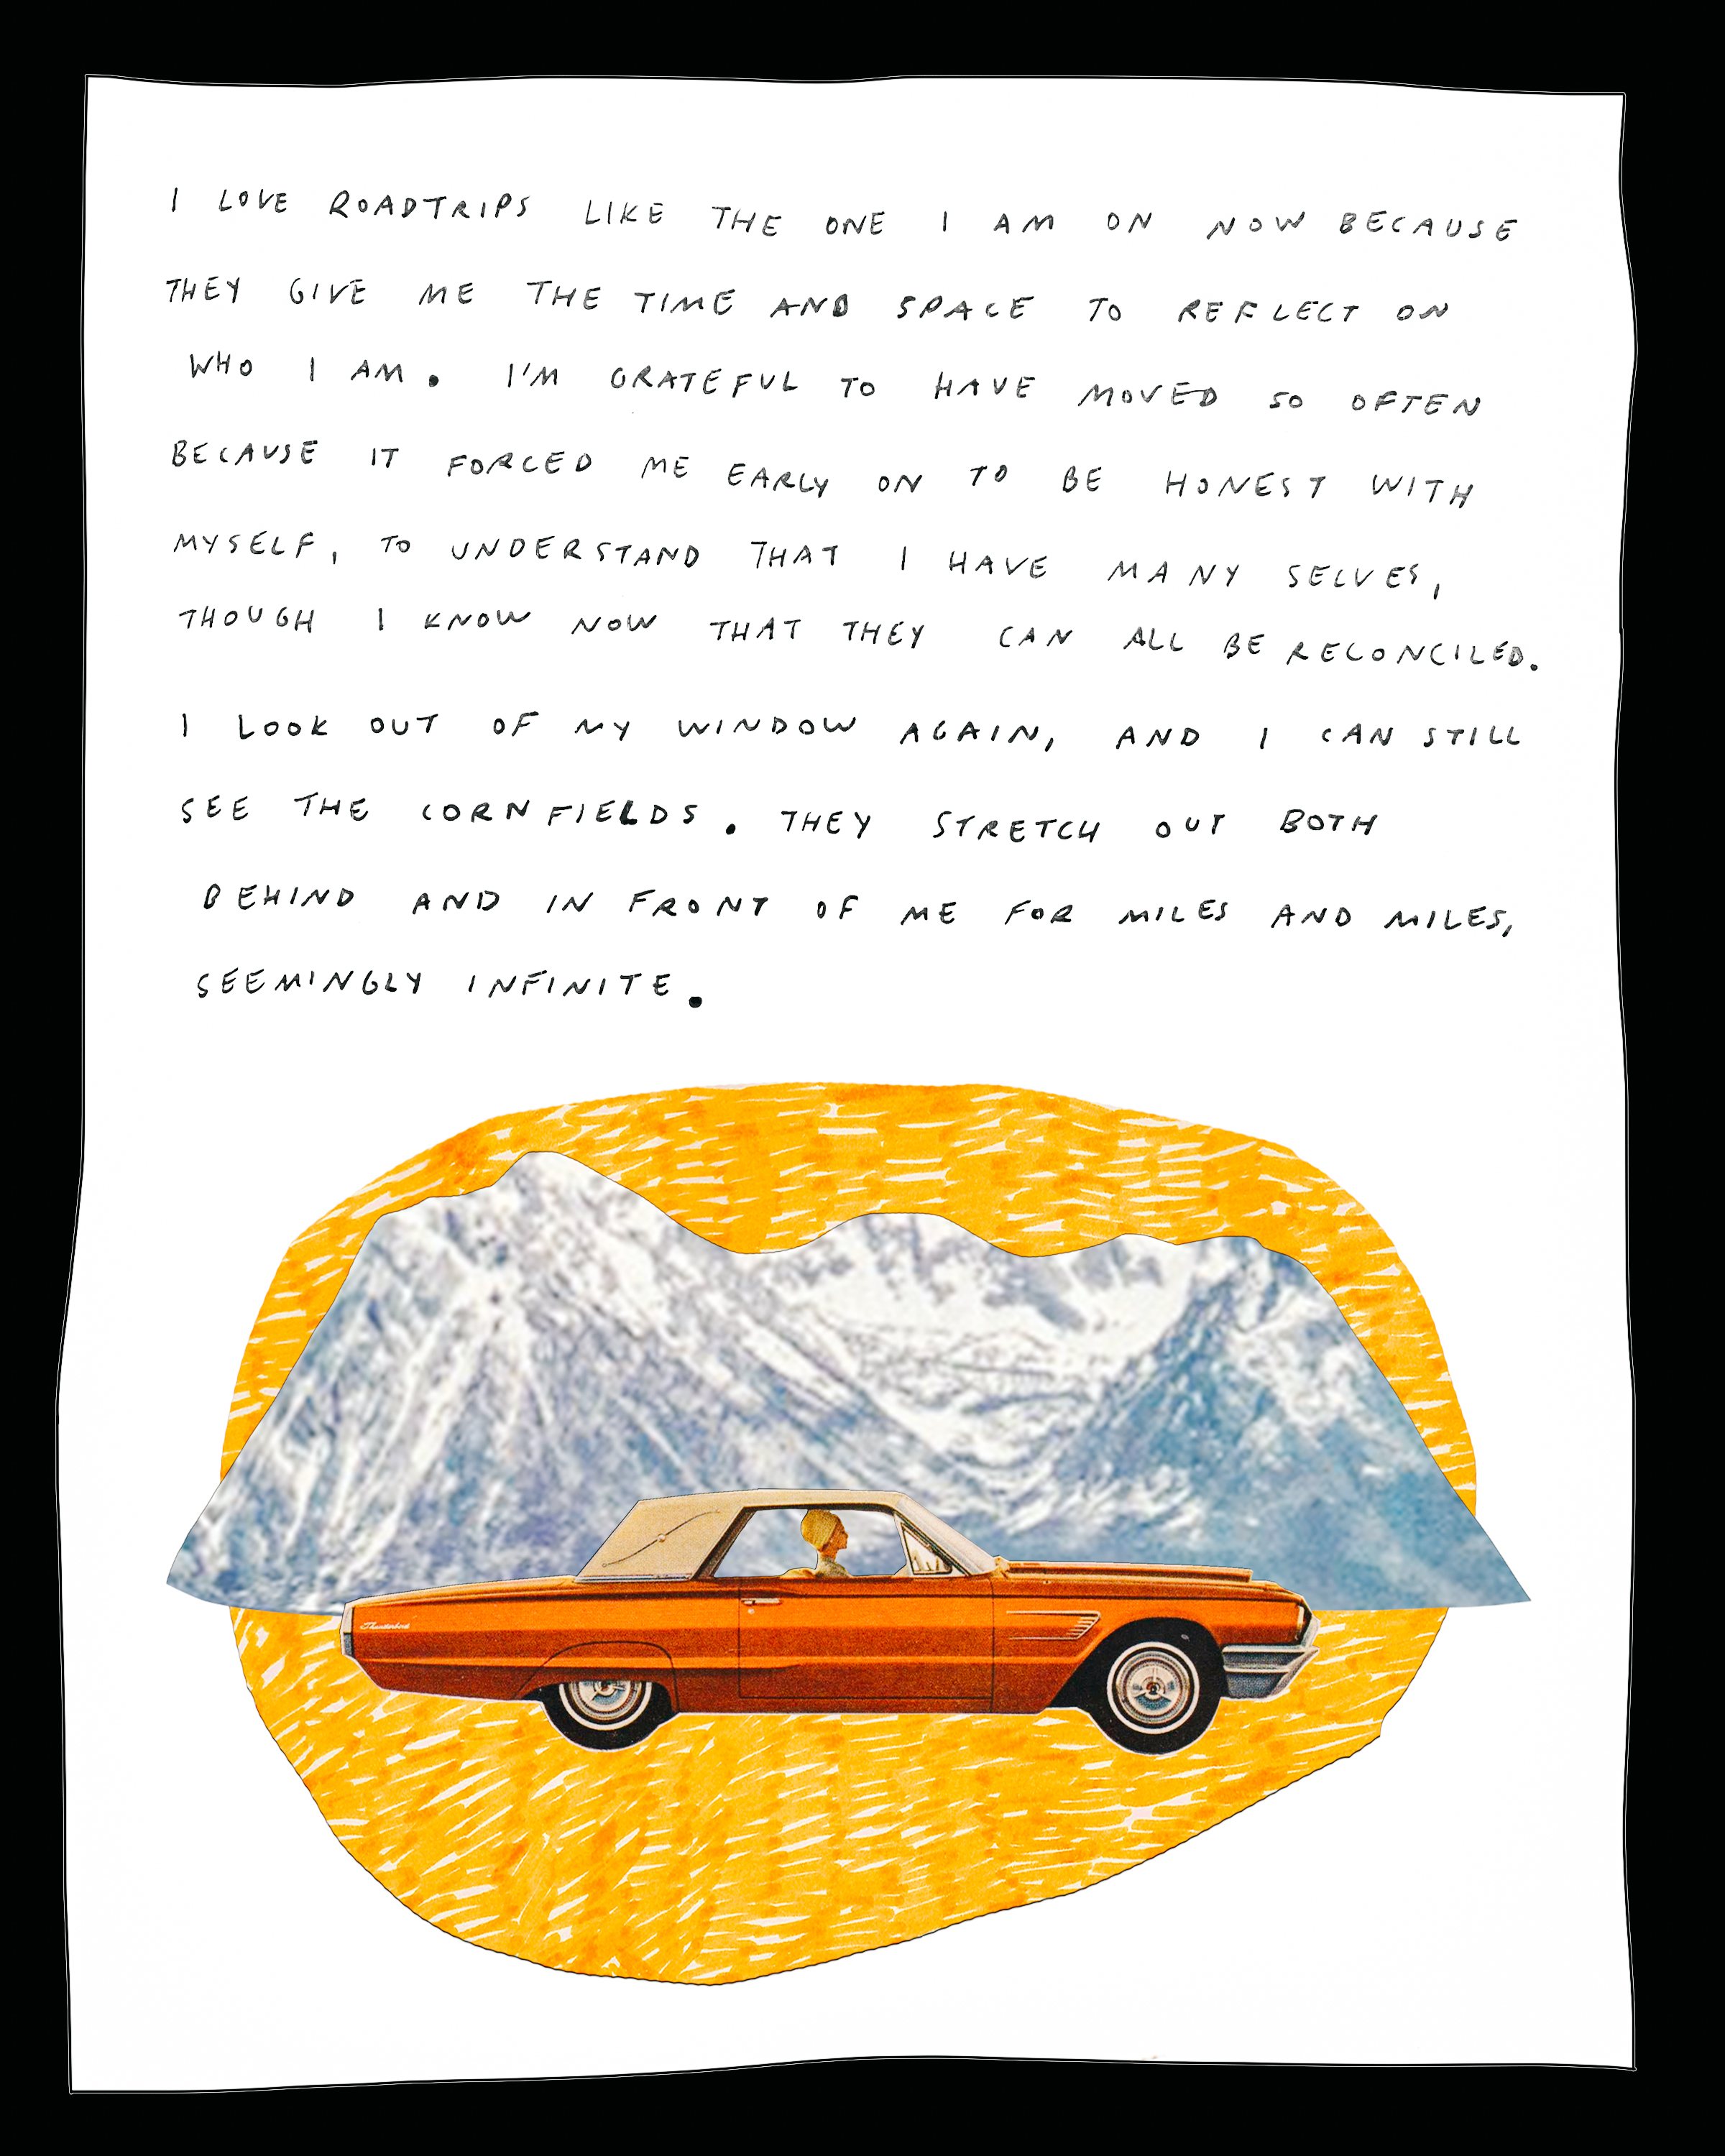 I LOVE ROADTRIPS LIKE THE ONE I AM ON NOW BECAUSE
THEY GIVE ME THE TIME AND SPACE TO REFLECT ON
WHO I AM. I'M GRATEFUL TO HAVE MOVED SO OFTEN
BECAUSE IT FORCED ME EARLY ON TO BE HONEST WITH
MYSELF, TO UNDERSTAND THAT I HAVE MANY SELVES,
THOUGH I KNOW NOW THAT THEY CAN ALL BE RECONCILED.
I LOOK OUT OF MY WINDOW AGAIN, AND I CAN STILL
SEE THE CORNFIELDS. THEY STRETCH OUT BOTH
BEHIND AND IN FRONT OF ME FOR MILES AND MILES,
SEEMINGLY INFINITE.
Thunderbird